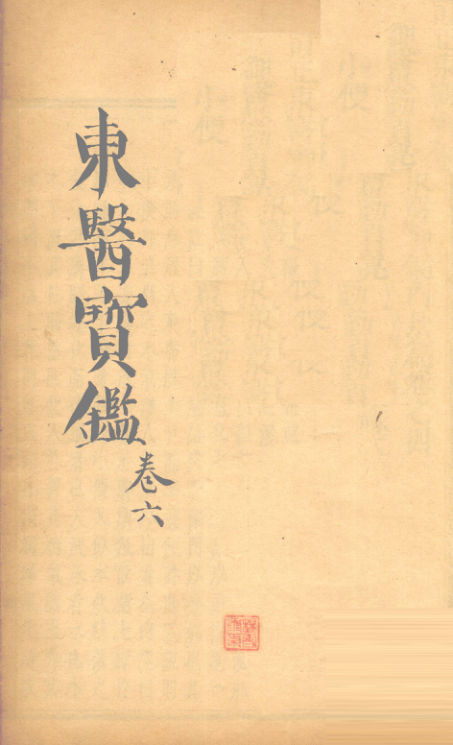 東醫寶鑑
卷六